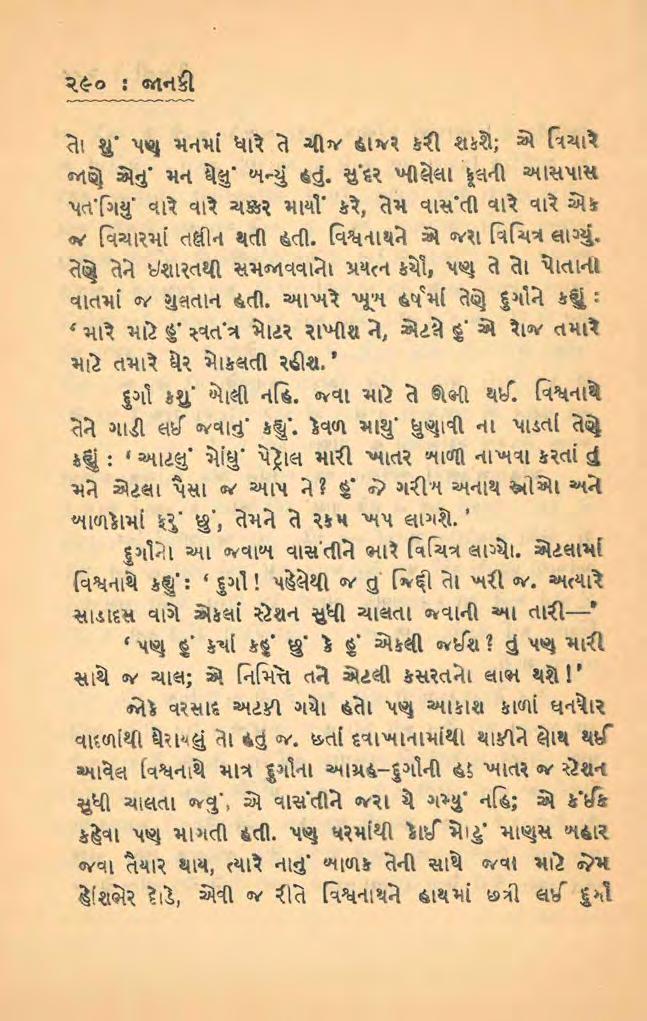 ૨૯૦ : જાનકી
તો શું પણ મનમાં ધારે તે ચીજ હાજર કરી શકશે; એ વિચારે
જાણે એનું મન ઘેલું બન્યું હતું. સુંદર ખીલેલા ફૂલની આસપાસ
પતંગિયું વારે વારે ચક્કર માર્યાં કરે, તેમ વાસંતી વારે વારે એક
જ વિચારમાં તલીન થતી હતી. વિશ્વનાથને એ જરા વિચિત્ર લાગ્યું.
તેણે તેને ઇશારતથી સમજાવવાનો પ્રયત્ન કર્યો, પણ તે તો પોતાની
વાતમાં જ ગુલતાન હતી. આખરે ખૂબ હર્ષમાં તેણે દુર્ગાને કહ્યું :
‘મારે માટે હું સ્વતંત્ર મોટર રાખીશ ને, એટલે હું એ રોજ તમારે
માટે તમારે ઘેર મોકલતી રહીશ.’
દુર્ગા કશું બોલી નહિ. જવા માટે તે ઊભી થઈ. વિશ્વનાથે
તેને ગાડી લઈ જવાનું કહ્યું. કેવળ માથું ધુણાવી ના પાડતાં તેણે
કહ્યું : ‘આટલું મોંઘું પેટ્રોલ મારી ખાતર બાળી નાખવા કરતાં તું
મને એટલા પૈસા જ આપ ને? હું જે ગરીબ અનાથ સ્ત્રીઓ અને
બાળકોમાં ફરું છું, તેમને તે રકમ ખપ લાગશે.’
દુર્ગાનો આ જવાબ વાસંતીને ભારે વિચિત્ર લાગ્યો. એટલામાં
વિશ્વનાથે કહ્યું : ‘દુર્ગા! પહેલેથી જ તું જિદ્દી તો ખરી જ. અત્યારે
સાડાદસ વાગે એકલાં સ્ટેશન સુધી ચાલતા જવાની આ તારી—’
‘પણ હું કયાં કહું છું કે હું એકલી જઈશ? તું પણ મારી
સાથે જ ચાલ; એ નિમિત્તે તને એટલી કસરતનો લાભ થશે!’
જોકે વરસાદ અટકી ગયો હતો પણ આકાશ કાળાં ઘનઘોર
વાદળાંથી ઘેરાયલું તો હતું જ. છતાં દવાખાનામાંથી થાકીને લોથ થઈ
આવેલ વિશ્વનાથે માત્ર દુર્ગાના આગ્રહ–દુર્ગાની હઠ ખાતર જ સ્ટેશન
સુધી ચાલતા જવું, એ વાસંતીને જરા યે ગમ્યું નહિ; એ કંઈક
કહેવા પણ માગતી હતી. પણ ઘરમાંથી કોઈ મોટું માણસ બહાર
જવા તૈયાર થાય, ત્યારે નાનું બાળક તેની સાથે જવા માટે જેમ
હોંશભેર દોડે, એવી જ રીતે વિશ્વનાથને હાથમાં છત્રી લઈ દુર્ગા